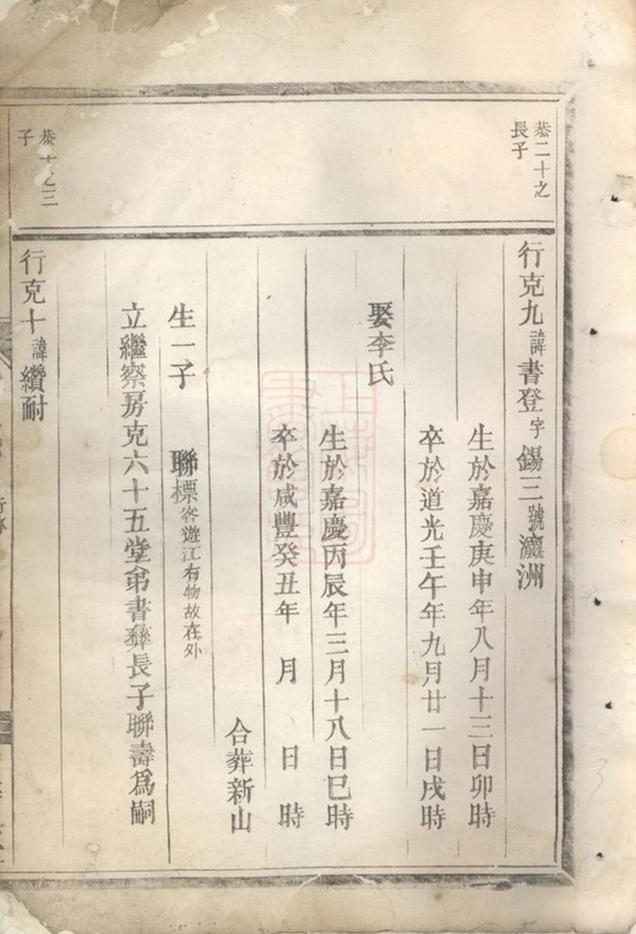 恭二十之
長子
行克九諱書登字錫三號瀛洲
生於嘉慶庚申年八月十三日卯時
卒於道光壬午年九月廿一日戌時
娶李氏
生於嘉慶丙辰年三月十八日巳時
卒於咸豐癸丑年 月 日 時
合葬新山
生一子 聯標客遊江右物故在外
立繼察房克六十五堂弟書彝長子聯壽為嗣
恭十之三
子
行克十諱續耐